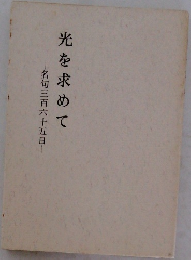 光を求めて
―名句三百六十五日―